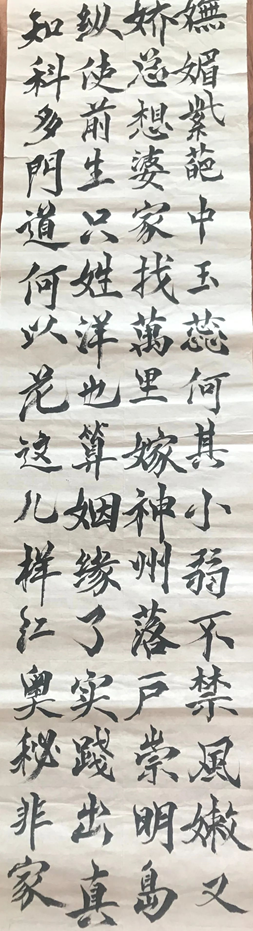 嫵媚紫葩中玉蕊何其小弱不禁風嫩又
娇总想婆家找萬里嫁神州落戸崇明島
纵使前生只姓洋也算姻缘了实踐出真
知科多門道何以花这儿样红奥秘非家